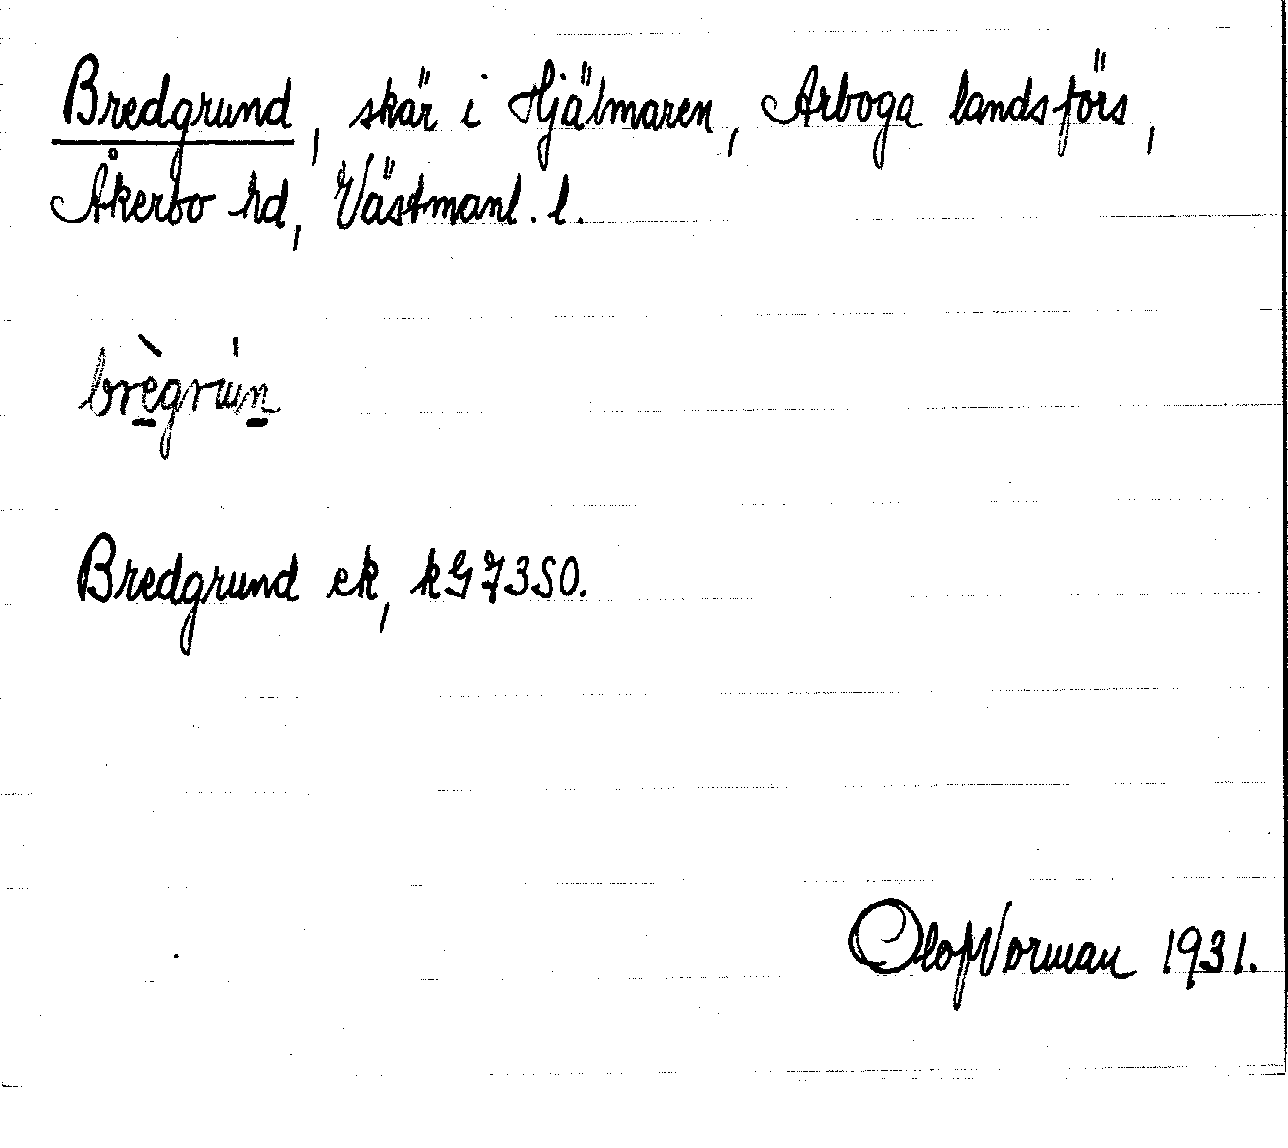 Bredgrund, skär i Hjälmaren, Arboga landsförs,
Åkerbo hd, Västmanl. l.
brè̱grúṉ
Bredgrund ek, kG7350.
Olof Norman 1931.